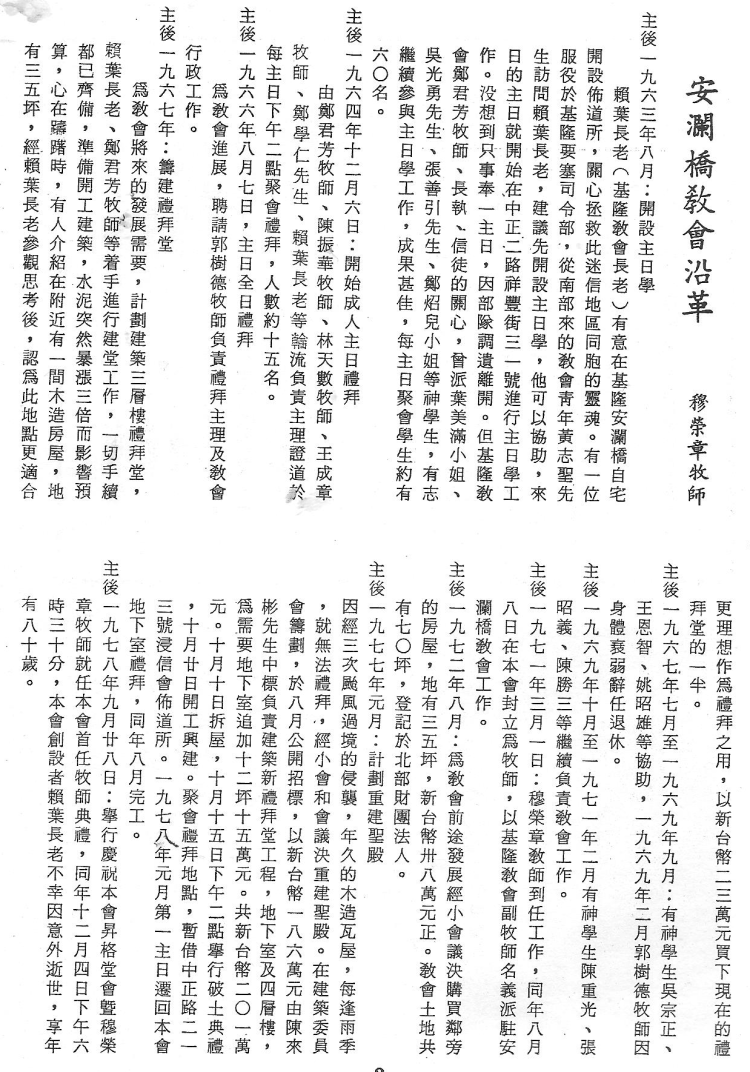 安瀾橋教會沿革
穆榮章牧師
主後一九六三年八月：開設主日學
賴葉長老（基隆敎會長老）有意在基隆安瀾橋自宅
開設佈道所，關心拯救此迷信地區同胞的靈魂。有一位
服役於基隆要塞司令部，從南部來的敎會青年黃志聖先
生訪問賴葉長老，建議先開設主日學，他可以協助，來
日的主日就開始在中正二路祥豐街三一號進行主日學工
作。没想到只事奉一主日，因部隊調遣離開。但基隆敎
會鄭君芳牧師、長執、信徒的關心，曾派葉美滿小姐、
吳光勇先生、張善引先生、鄭炤兒小姐等神學生，有志
繼續參與主日學工作，成果甚佳，每主日聚會學生約有
六○名。
主後一九六四年十二月六日：開始成人主日禮拜
由鄭君芳牧師、陳振華牧師、林天數牧師、王成章
牧師、鄭學仁先生、賴葉長老等輪流負責主理證道於
每主日下午二點聚會禮拜，人數約十五名。
主後一九六六年八月七日，主日全日禮拜
爲敎會進展，聘請郭樹德牧師負責禮拜主理及敎會
行政工作。
主後一九六七年：籌建禮拜堂
爲敎會將來的發展需要，計劃建築三層樓禮拜堂，
賴葉長老、鄭君芳牧師等着手進行建堂工作，一切手續
都已齊備，準備開工建築，水泥突然暴漲三倍而影響預
算，心在躊躇時，有人介紹在附近有一間木造房屋，地
有三五坪，經賴葉長老參觀思考後，認爲此地點更適合
更理想作爲禮拜之用，以新台幣二三萬元買下現在的禮
拜堂的一半。
主後一九六七年七月至一九六九年九月：有神學生吳宗正、
王恩智、姚昭雄等協助，一九六九年二月郭樹德牧師因
身體衰弱辭任退休。
主後一九六九年十月至一九七一年二月有神學生陳重光、張
昭義、陳勝三等繼續負責敎會工作。
主後一九七一年三月一日：穆榮章敎師到任工作，同年八月
八日在本會封立爲牧師，以基隆敎會副牧師名義派駐安
瀾橋敎會工作。
主後一九七二年八月：爲敎會前途發展經小會議決購買鄰旁
的房屋，地有三五坪，新台幣卅八萬元正。敎會土地共
有七○坪，登記於北部財團法人。
主後一九七七年元月：計劃重建聖殿
因經三次颱風過境的侵襲，年久的木造瓦屋，每逢雨季
，就無法禮拜，經小會和會議決重建聖殿。在建築委員
會籌劃，於八月公開招標，以新台幣一八六萬元由陳來
彬先生中標負責建築新禮拜堂工程，地下室及四層樓，
爲需要地下室追加十二坪十五萬元。共新台幣二○一萬
元。十月十日拆屋，十月十五日下午二點舉行破土典禮
，十月廿日開工興建。聚會禮拜地點，暫借中正路二一
三號浸信會佈道所。一九七八年元月第一主日遷回本會
地下室禮拜，同年八月完工。
主後一九七八年九月廿八日：舉行慶祝本會昇格堂會暨穆榮
章牧師就任本會首任牧師典禮，同年十二月四日下午六
時三十分，本會創設者賴葉長老不幸因意外逝世，享年
有八十歲。